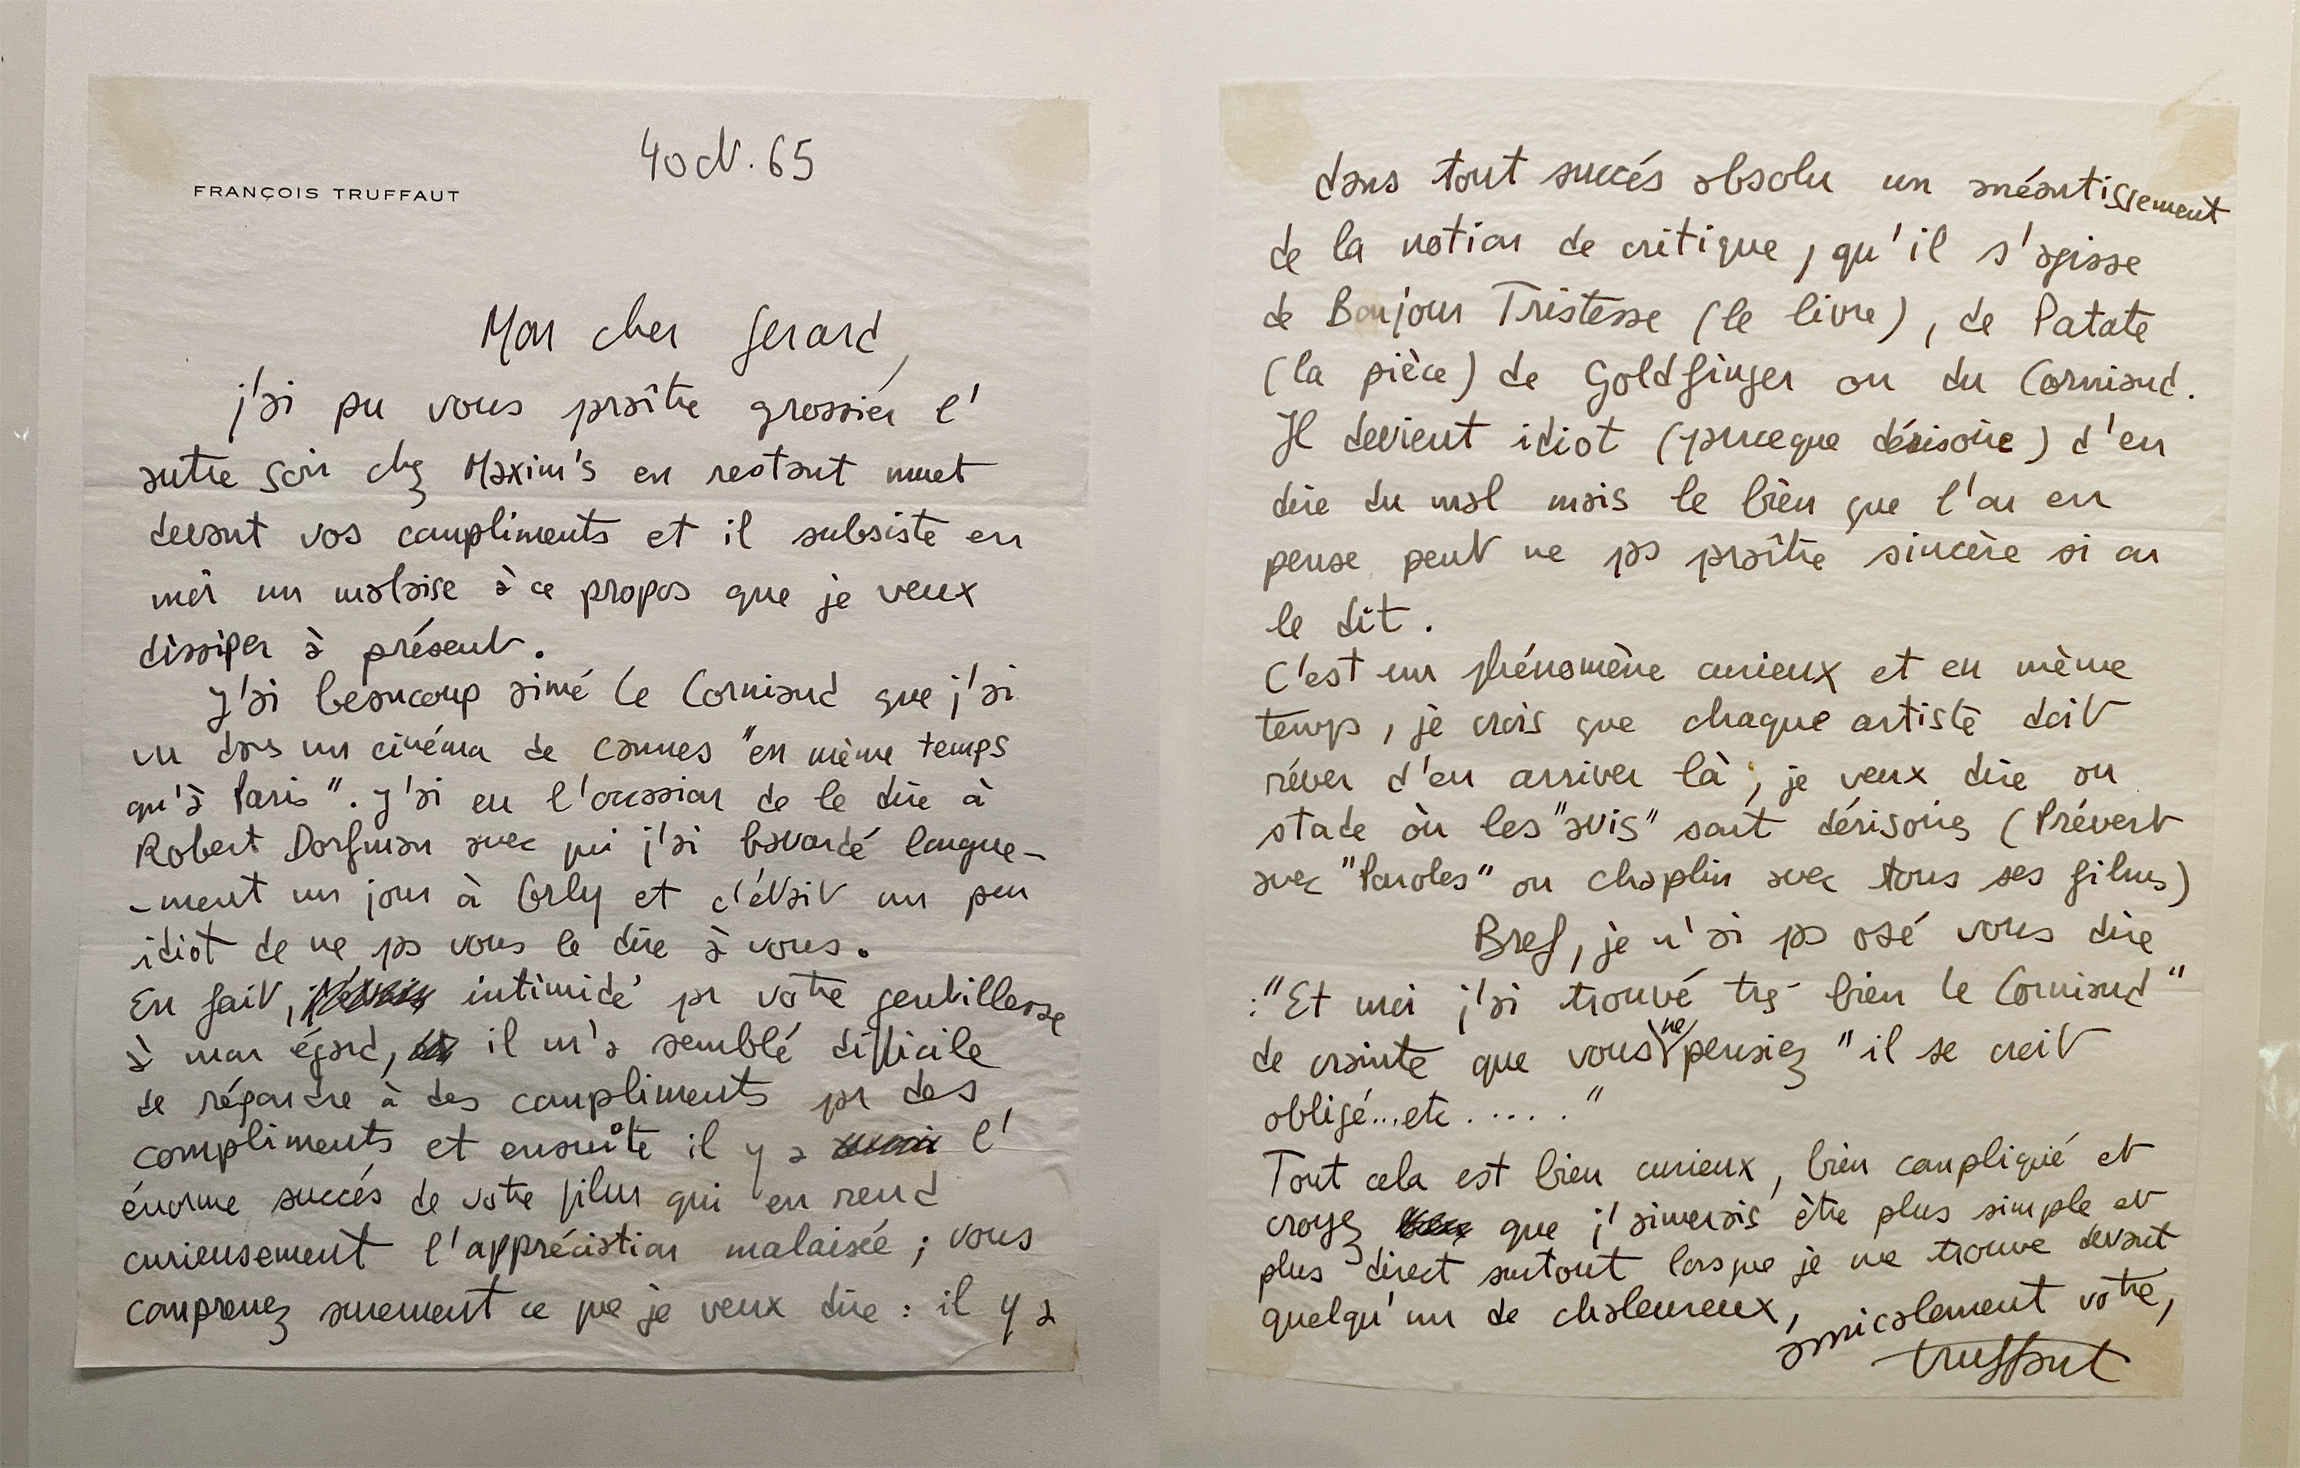 FRANÇOIS TRUFFAUT
4 oct. 65
Mon cher Gerard,
j'ai pu vous praître grossier l'
autre soir chez Maxim's en restant muet
devant vos compliments et il subsiste en
moi un malaise à ce propos que je veux
dissiper à présent.
J'ai beaucoup aimé le Corniaud que j'ai
vu dans un cinéma de Cannes "en même temps
qu'à Paris". J'ai eu l'occasion de le dire à
Robert Dorfman avec qui j'ai bavardé longue-
-ment un jour à Orly et c'était un peu
idiot de ne pas vous le dire à vous.
En fait, intimidé par votre gentillesse
à mon égard, il m'a semblé difficile
de répondre à des compliments par des
compliments et ensuite il y a l'
énorme succés de votre film qui en rend
curieusement l'appréciation malaisée ; vous
comprenez surement ce que je veux dire : il y a
dans tout succés absolu un anéantissement
de la notion de critique, qu'il s'agisse
de Bonjour Tristesse (le livre), de Patate
(la pièce) de Goldfinger ou du Corniaud.
Il devient idiot (parceque dérisoire) d'en
dire du mal mais le bien que l'on en
pense peut ne pas praître sincère si on
le dit.
C'est un phénomène curieux et en même
temps, je crois que chaque artiste doit
réver d'en arriver là ; je veux dire au
stade où les "avis" sont dérisoires (Prévert
avec "Paroles" ou Chaplin avec tous ses films)
Bref, je n'ai pas osé vous dire
:"Et moi j'ai trouvé très bien le Corniaud"
de crainte que vous ne pensiez "il se croit
obligé...etc....."
Tout cela est bien curieux, bien compliqué et
croyez que j'aimerais être plus simple et
plus direct surtout lorsque je me trouve devant
quelqu'un de chaleureux,
amicalement votre,
truffaut